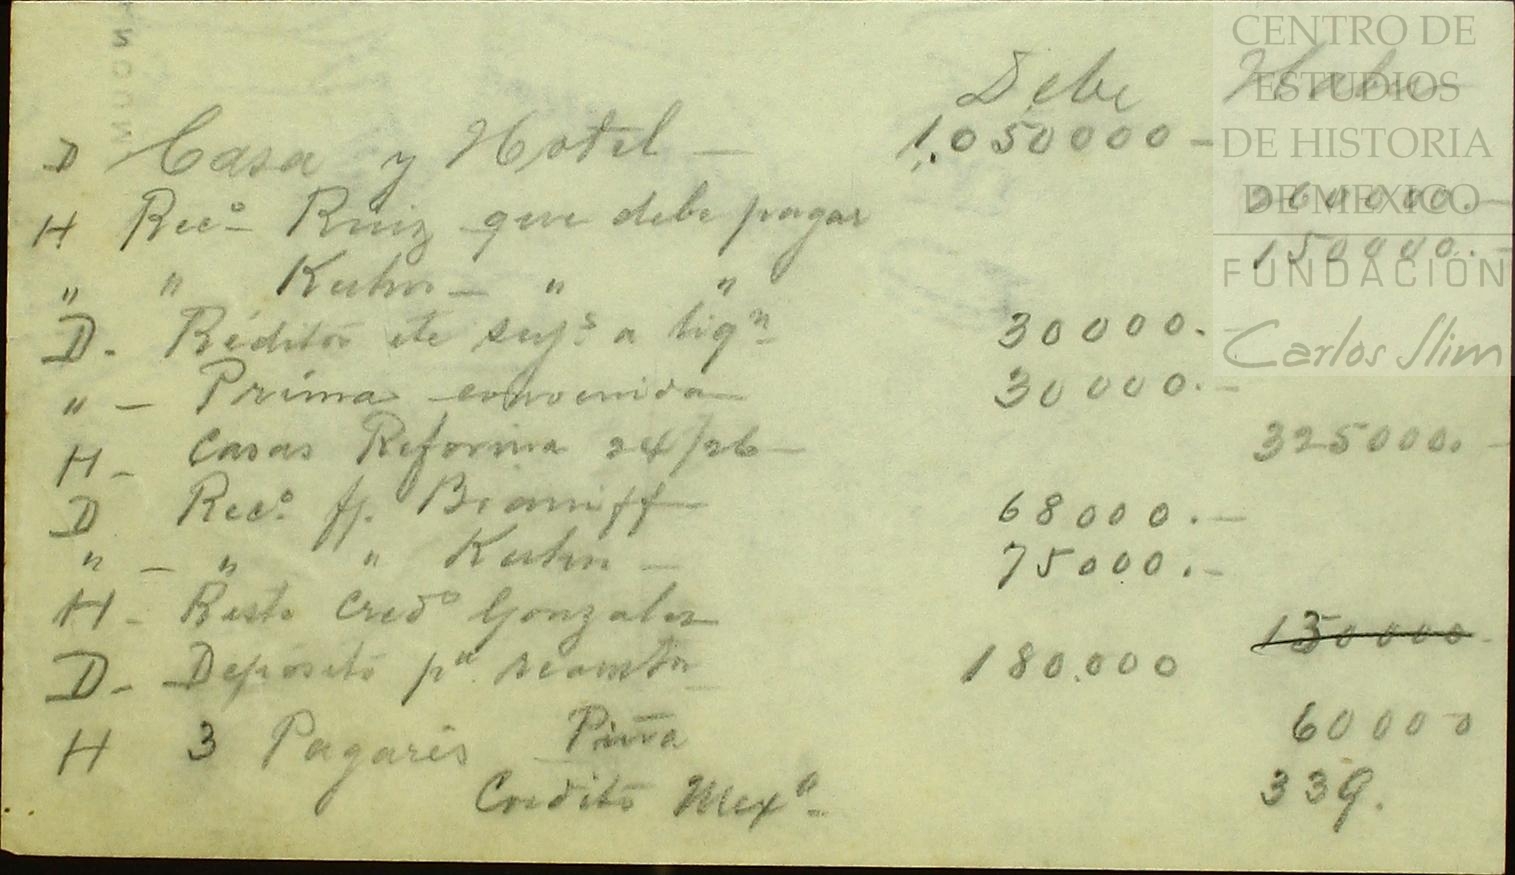 Debe Haber
D Casa y Hotel — 1.050000 —
H Recº Ruiz que debe pagar 360000.—
" " Kuhn — " " 150000.—
D. Réditos etc sujs a liqn 30000.—
" — Prima convenida 30000.—
H — Casas Reforma 24/26 — 325000.—
D Recº ff. Braniff 68000.—
" — " " Kuhn — 75000.—
H — Resto Credº Gonzalez 150000 —
D — Deposito pª 180.000
H 3 Pagarés Piña 60000
Credito Mexº 339.
CENTRO DE
ESTUDIOS
DE HISTORIA
DE MEXICO
FUNDACIÓN
Carlos Slim